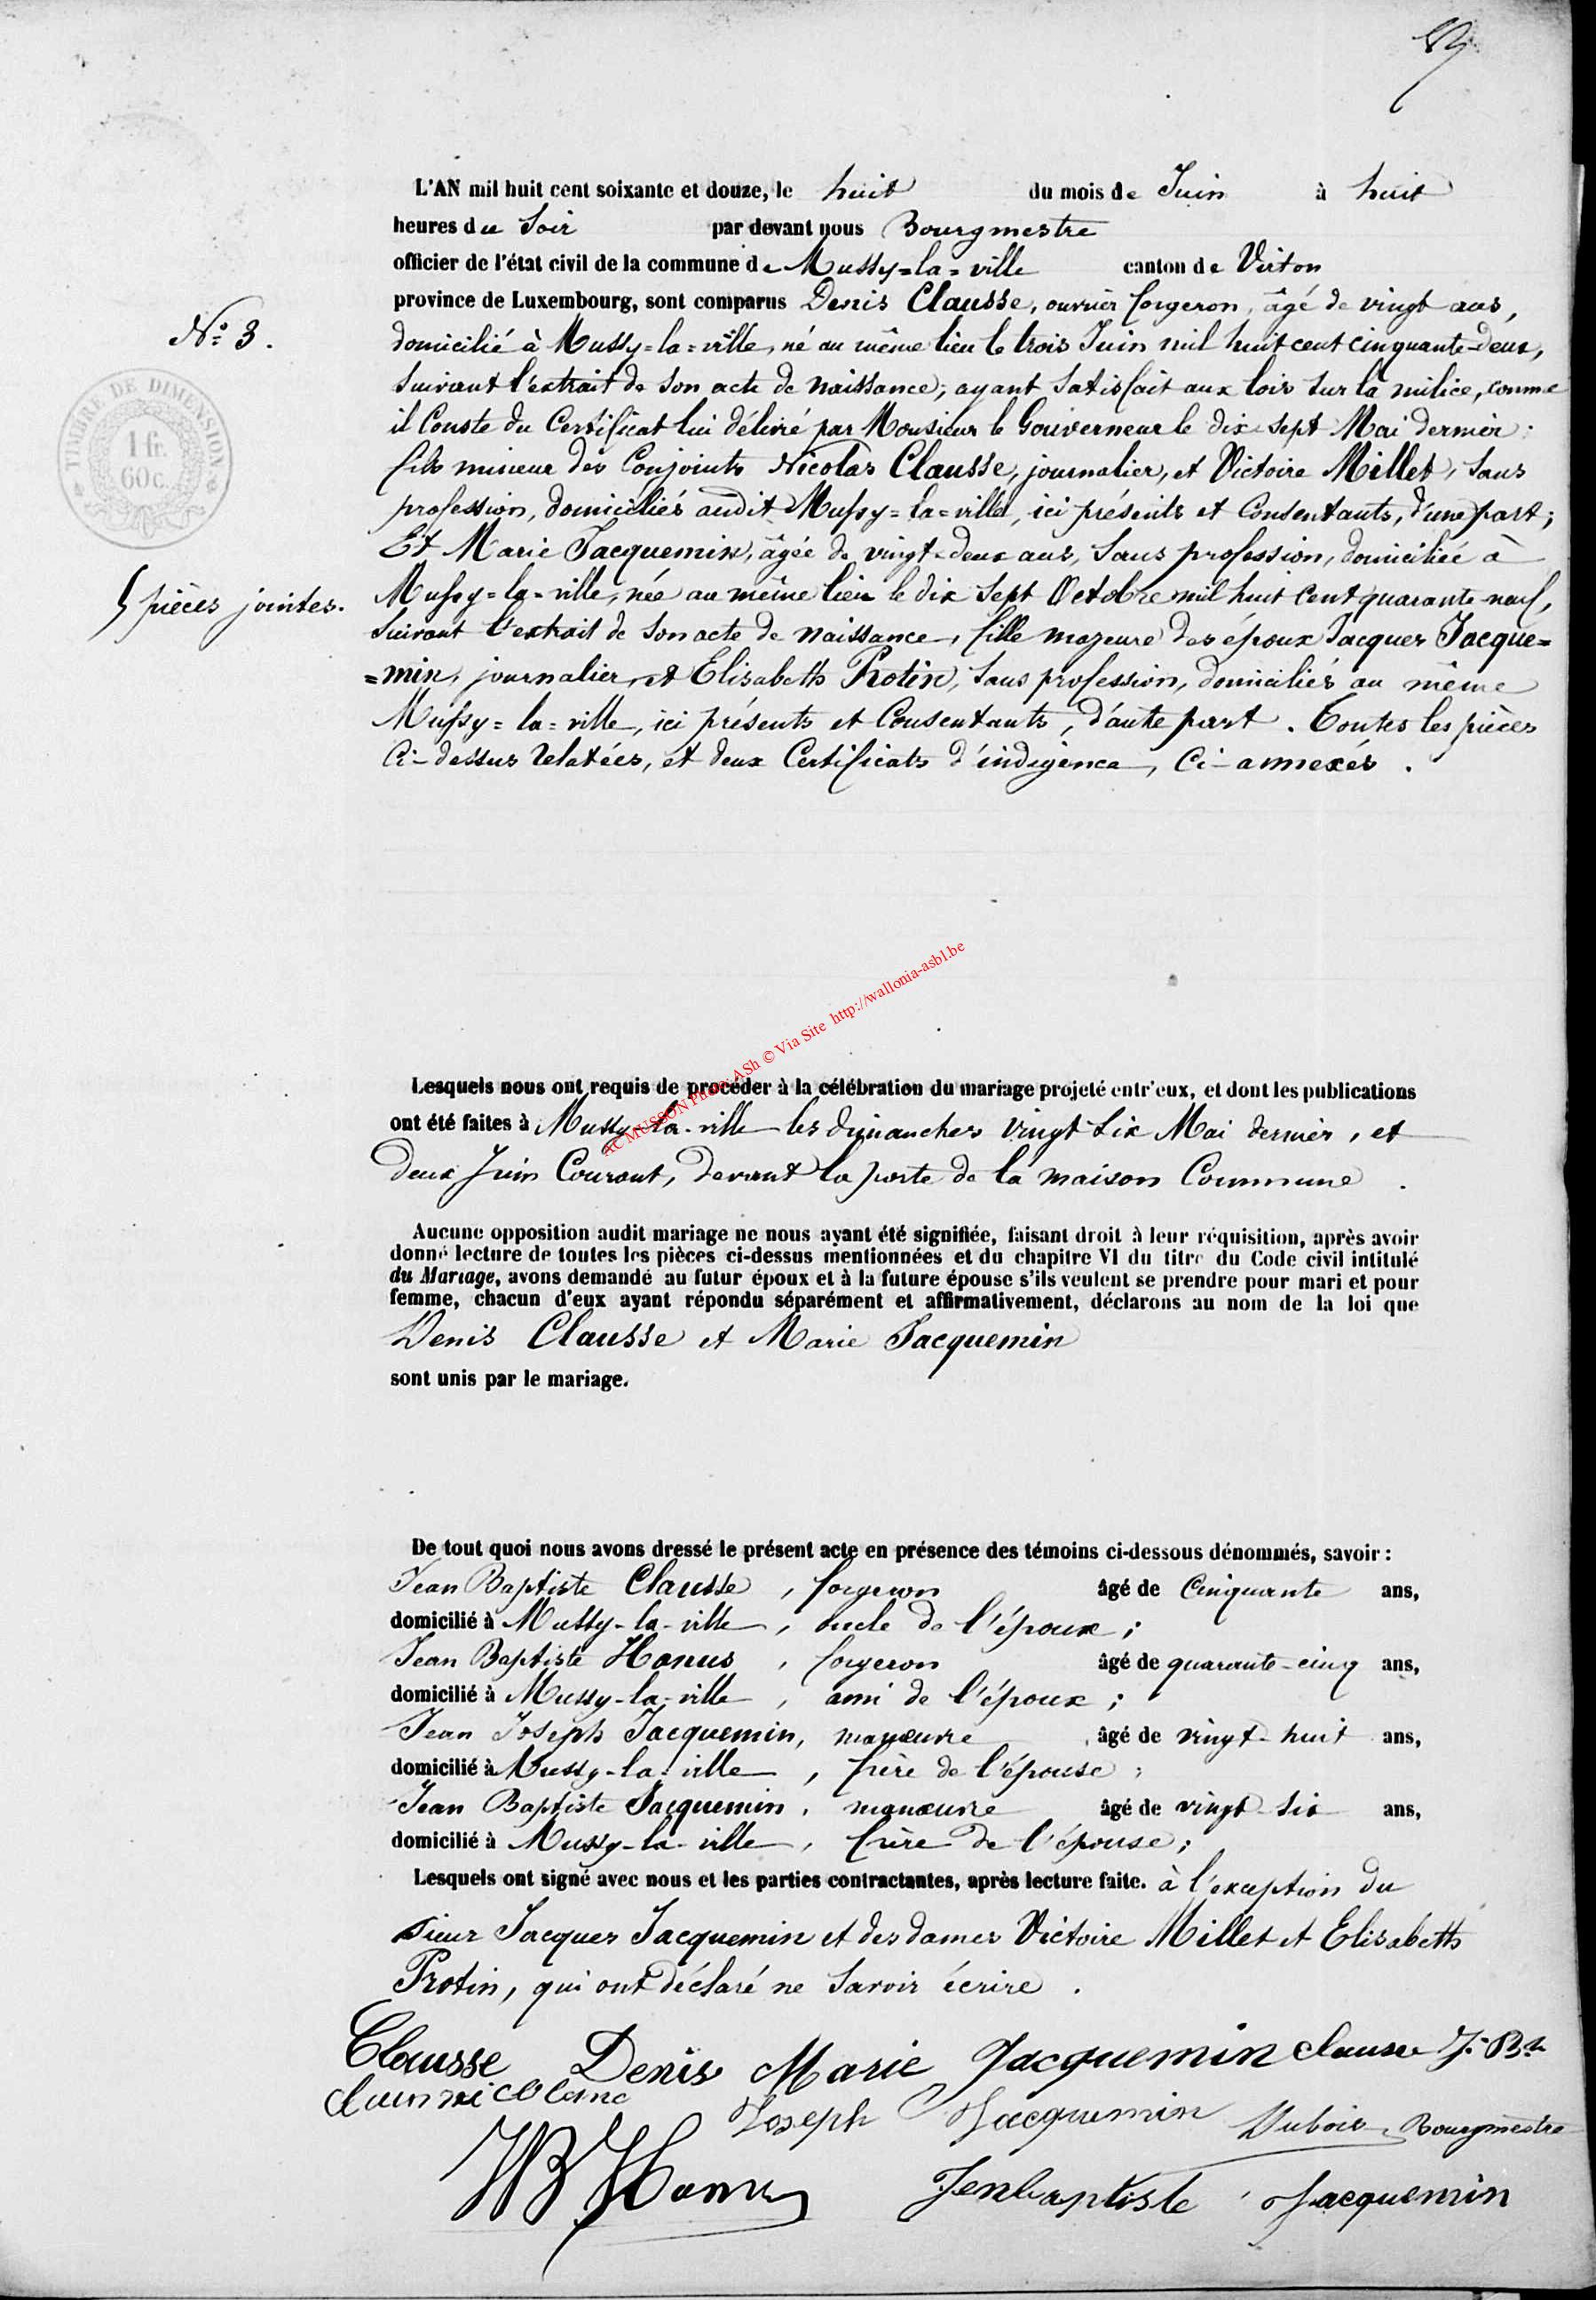 L'AN mil huit cent soixante et douze, le huit du mois de Juin à huit
heures du Soir par devant nous Bourgmestre
officier de l'état civil de la commune de Mussy=la=ville canton de Virton
province de Luxembourg, sont comparus Denis Clausse, ouvrier forgeron, âgé de vingt ans,
N.° 3.
domicilié à Mussy=la=ville, né au même lieu le trois Juin mil huit cent cinquante-deux,
suivant l'extrait de son acte de naissance; ayant satisfait aux lois sur la milice, comme
TIMBRE DE DIMENSION
1 fr.
60 c.
il Conste du Certificat lui délivré par Monsieur le Gouverneur le dix-sept Mai dernier;
fils mineur des Conjoints Nicolas Clausse, journalier, et Victoire Millet, sans
profession, domiciliés audit Mussy=la=ville, ici présents et Consentants, d'une part;
Et Marie Jacquemin, âgée de vingt-deux ans, sans profession, domiciliée à
5 pièces jointes.
Mussy=la=ville, née au même lieu le dix sept Octobre mil huit Cent quarante neuf,
suivant l'extrait de son acte de naissance, fille majeure des époux Jacques Jacque=
=min, journalier, et Elisabeth Protin, sans profession, domiciliés au même
Mussy=la=ville, ici présents et Consentants, d'autre part. Toutes les pièces
Ci-dessus relatées, et deux Certificats d'indigence, Ci-annexés.
AC MUSSON Photo ASh © Via Site http://wallonia-asbl.be
Lesquels nous ont requis de procéder à la célébration du mariage projeté entr'eux, et dont les publications
ont été faites à Mussy-la-ville les dimanches vingt six Mai dernier, et
deux Juin Courant, devant la porte de la maison Commune.
Aucune opposition audit mariage ne nous ayant été signifiée, faisant droit à leur réquisition, après avoir
donné lecture de toutes les pièces ci-dessus mentionnées et du chapitre VI du titre du Code civil intitulé
du Mariage, avons demandé au futur époux et à la future épouse s'ils veulent se prendre pour mari et pour
femme, chacun d'eux ayant répondu séparément et affirmativement, déclarons au nom de la loi que
Denis Clausse et Marie Jacquemin
sont unis par le mariage.
De tout quoi nous avons dressé le présent acte en présence des témoins ci-dessous dénommés, savoir :
Jean Baptiste Clausse, forgeron âgé de Cinquante ans,
domicilié à Mussy-la-ville, oncle de l'époux;
Jean Baptiste Hanus, forgeron âgé de quarante-cinq ans,
domicilié à Mussy-la-ville, ami de l'époux;
Jean Joseph Jacquemin, manœuvre âgé de vingt-huit ans,
domicilié à Mussy-la-ville, frère de l'épouse;
Jean Baptiste Jacquemin, manœuvre âgé de vingt-six ans,
domicilié à Mussy-la-ville, frère de l'épouse;
Lesquels ont signé avec nous et les parties contractantes, après lecture faite. à l'exception du
sieur Jacques Jacquemin et des dames Victoire Millet et Elisabeth
Protin, qui ont déclaré ne savoir écrire.
Clausse Denis Marie Jacquemin Clausse J. Bte
Joseph Jacquemin Dubois, Bourgmestre
JB Hanus Jenbaptiste Jacquemin